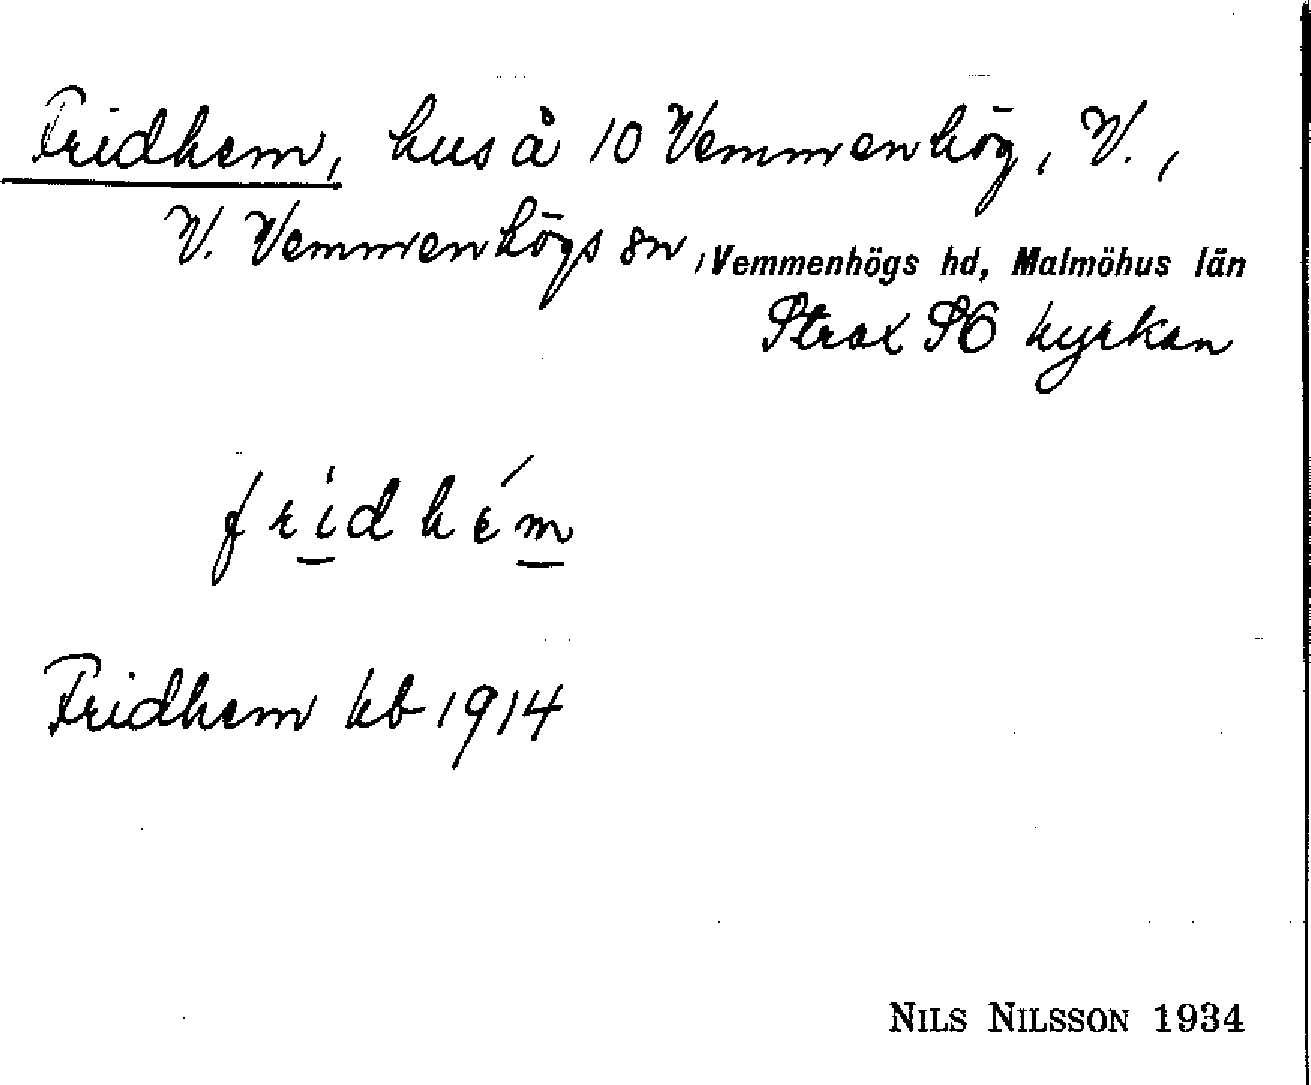 Fridhem, hus å 10 Vemmenhög, V.,
V. Vemmenhögs sn, Vemmenhögs hd, Malmöhus län
Strax SO kyrkan
fridhém
Fridhem kb 1914
NILS NILSSON 1934